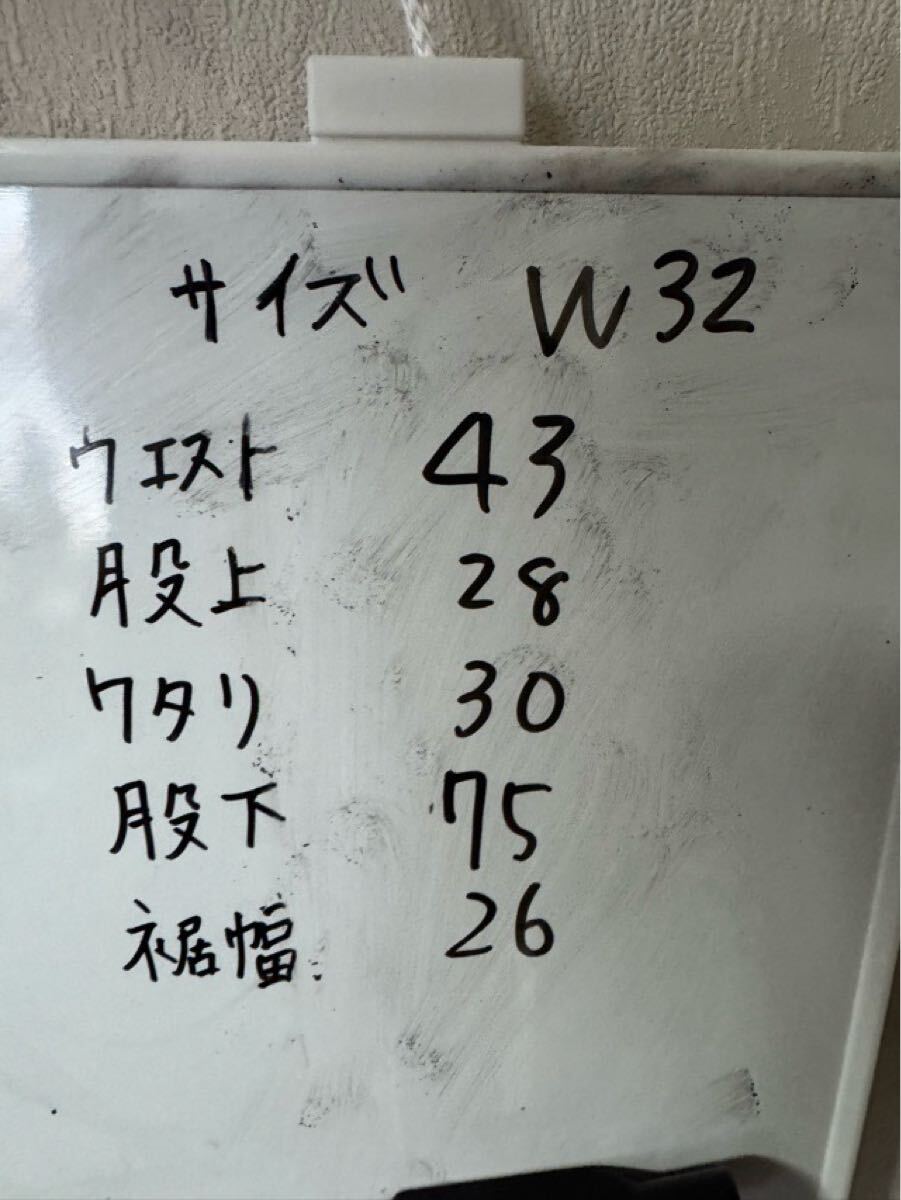 サイズ W32
ウエスト 43
股上 28
ワタリ 30
股下 75
裾幅 26